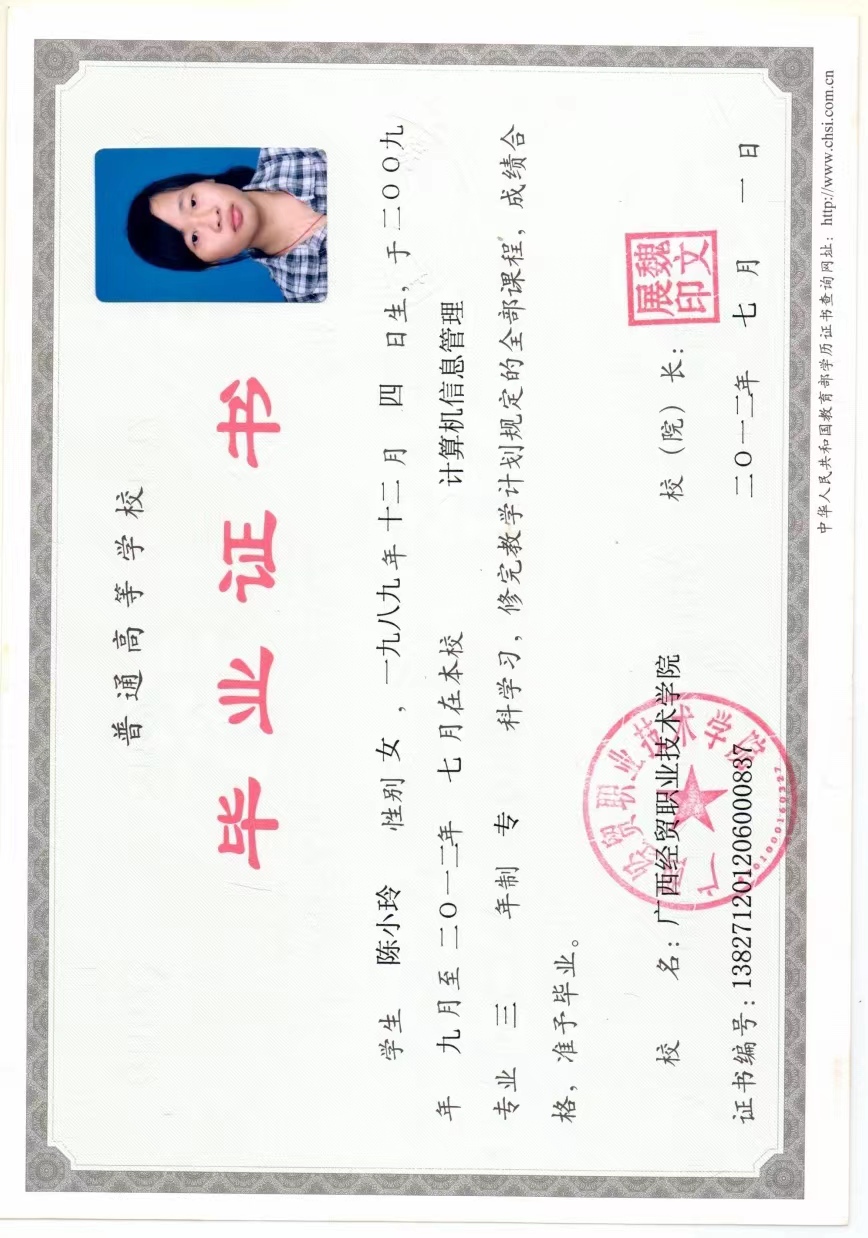 普通高等学校
毕业证书
学生 陈小玲 性别 女 ，一九八九年十二月 四 日生，于二〇〇九
年 九月至二〇一二年 七月在本校 计算机信息管理
专业 三 年制 专 科学习，修完教学计划规定的全部课程，成绩合
格，准予毕业。
校 名：广西经贸职业技术学院
校（院）长：
魏文展印
证书编号：138271201206000837
二〇一二年 七 月 一 日
中华人民共和国教育部学历证书查询网址：http://www.chsi.com.cn